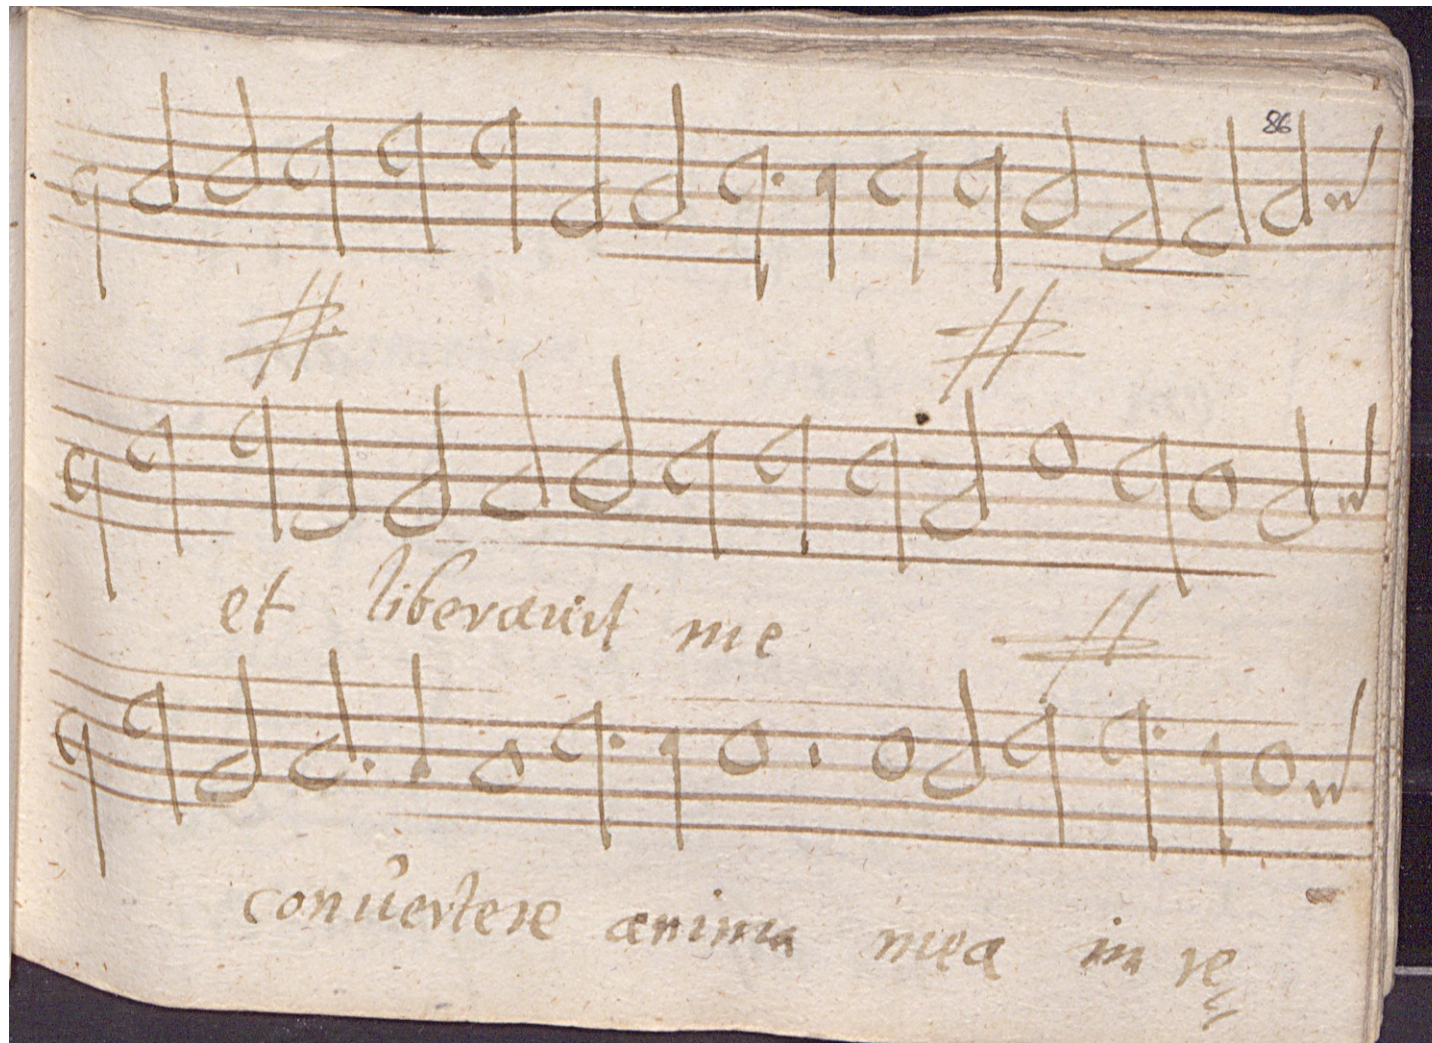 86
et liberauit me
conuertere anima mea in re